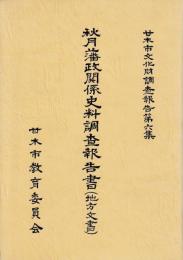 甘木市文化財調査報告第六集
秋月藩政関係史料調査報告書Ⅰ(地方文書Ⅰ)
甘木市教育委員会